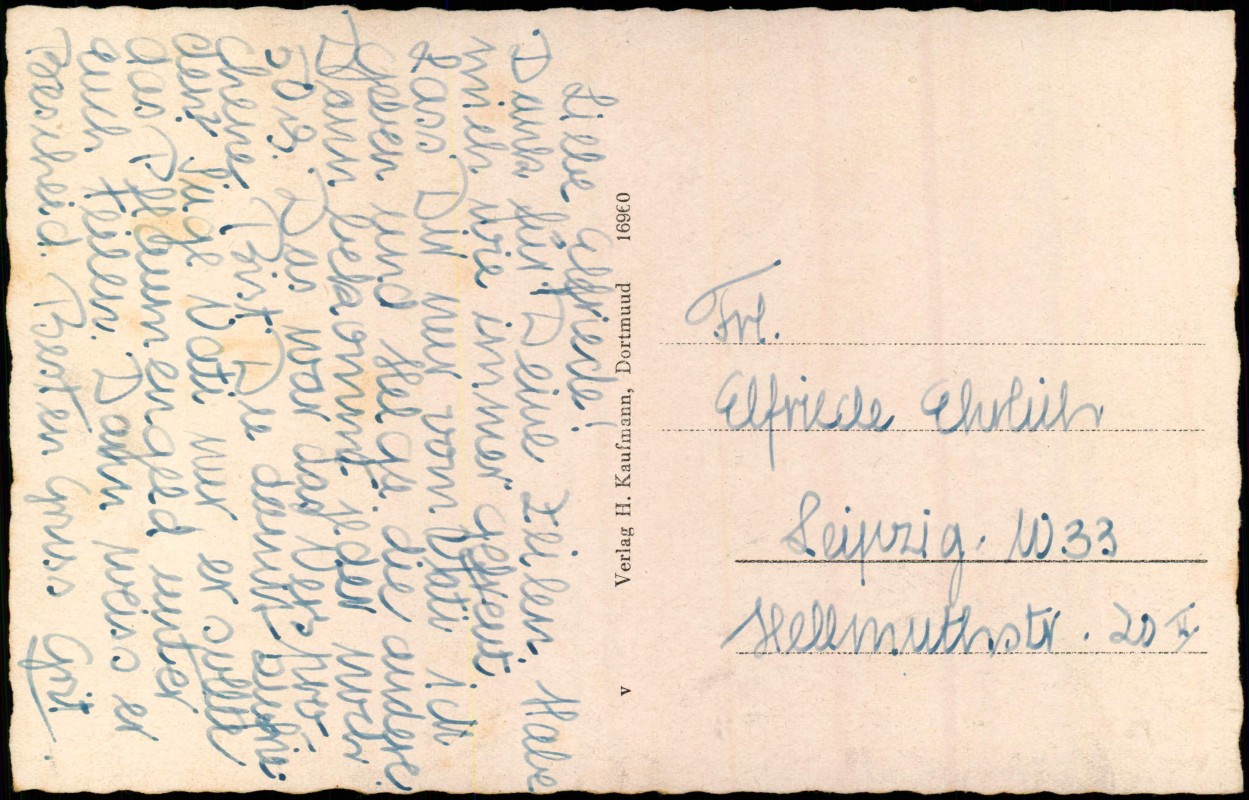 Liebe Elfriede!
Dank für Deine Zeilen. Habe
mich wie immer gefreut
Lass Dir nur vom Vati 1 ick
geben und Helga die andere
Dann bekommt jeder noch
50 Das war das Verspro
chene. Bist Du damit zufrie.
den? Sage Vati nur er sollte
das Pflaumengeld unter
euch teilen. Dann weiss er
Bescheid. Besten Gruss Gert.
Verlag H. Kaufmann, Dortmund 16960
v
Frl.
Elfriede Ehrlich
Leipzig. W 33
Hellmuthstr. 20 II